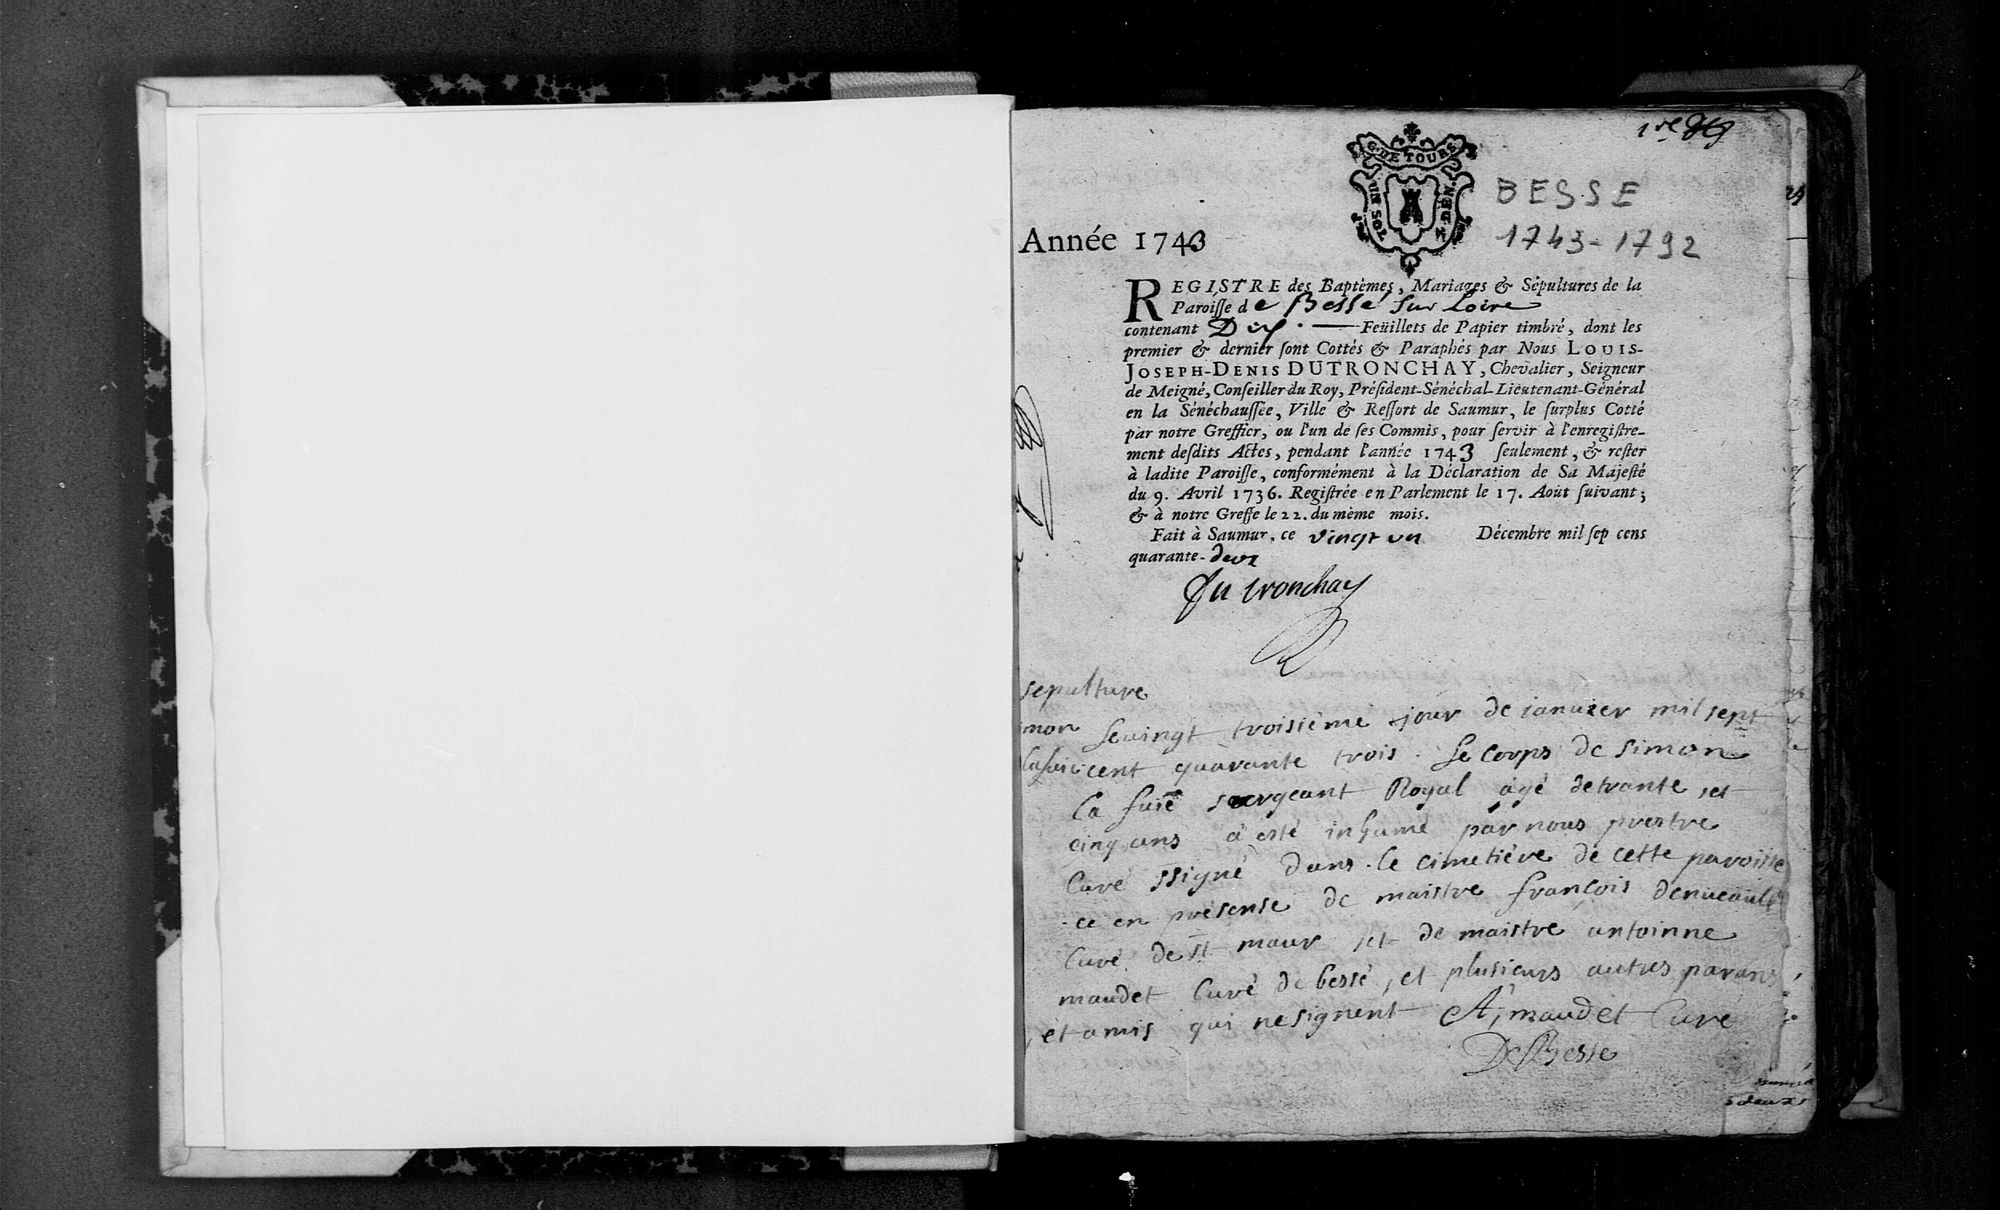 1re
G. DE TOURS
UN SOL
DEN.
BESSE
1743-1792
Année 1743
REGISTRE des Baptêmes, Mariages & Sépultures de la
Paroisse de Bessé sur Loire
contenant Dix Feüillets de Papier timbré, dont les
premier & dernier sont Cottés & Paraphés par Nous LOUIS-
JOSEPH-DENIS DUTRONCHAY, Chevalier, Seigneur
de Meigné, Conseiller du Roy, Président-Sénéchal-Lieutenant-Général
en la Sénéchaussée, Ville & Ressort de Saumur, le surplus Cotté
par notre Greffier, ou l'un de ses Commis, pour servir à l'enregistre-
ment desdits Actes, pendant l'année 1743 seulement, & rester
à ladite Paroisse, conformément à la Déclaration de Sa Majesté
du 9. Avril 1736. Registrée en Parlement le 17. Août suivant;
& à notre Greffe le 22. du même mois.
Fait à Saumur, ce vingt un Décembre mil sep cens
quarante-deux
Du tronchay
sepulture
mon le vingt troisième jour de ianuier mil sept
cent quarante trois. le corps de simon
la fuië sergeant Royal âgé de trante et
cinq ans a esté inhumé par nous prestre
Curé ssigné dans le cimetière de cette paroisse
ce en présense de maistre françois deneuault
Curé de st maur et de maistre antoinne
maudet Curé de bessé, et plusieurs autres parans
et amis qui ne signent A, maudet Curé
De Besse
5 deux